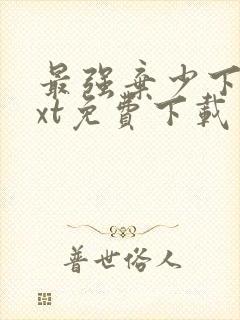 最强棄少下
xt免費下載
普世俗人